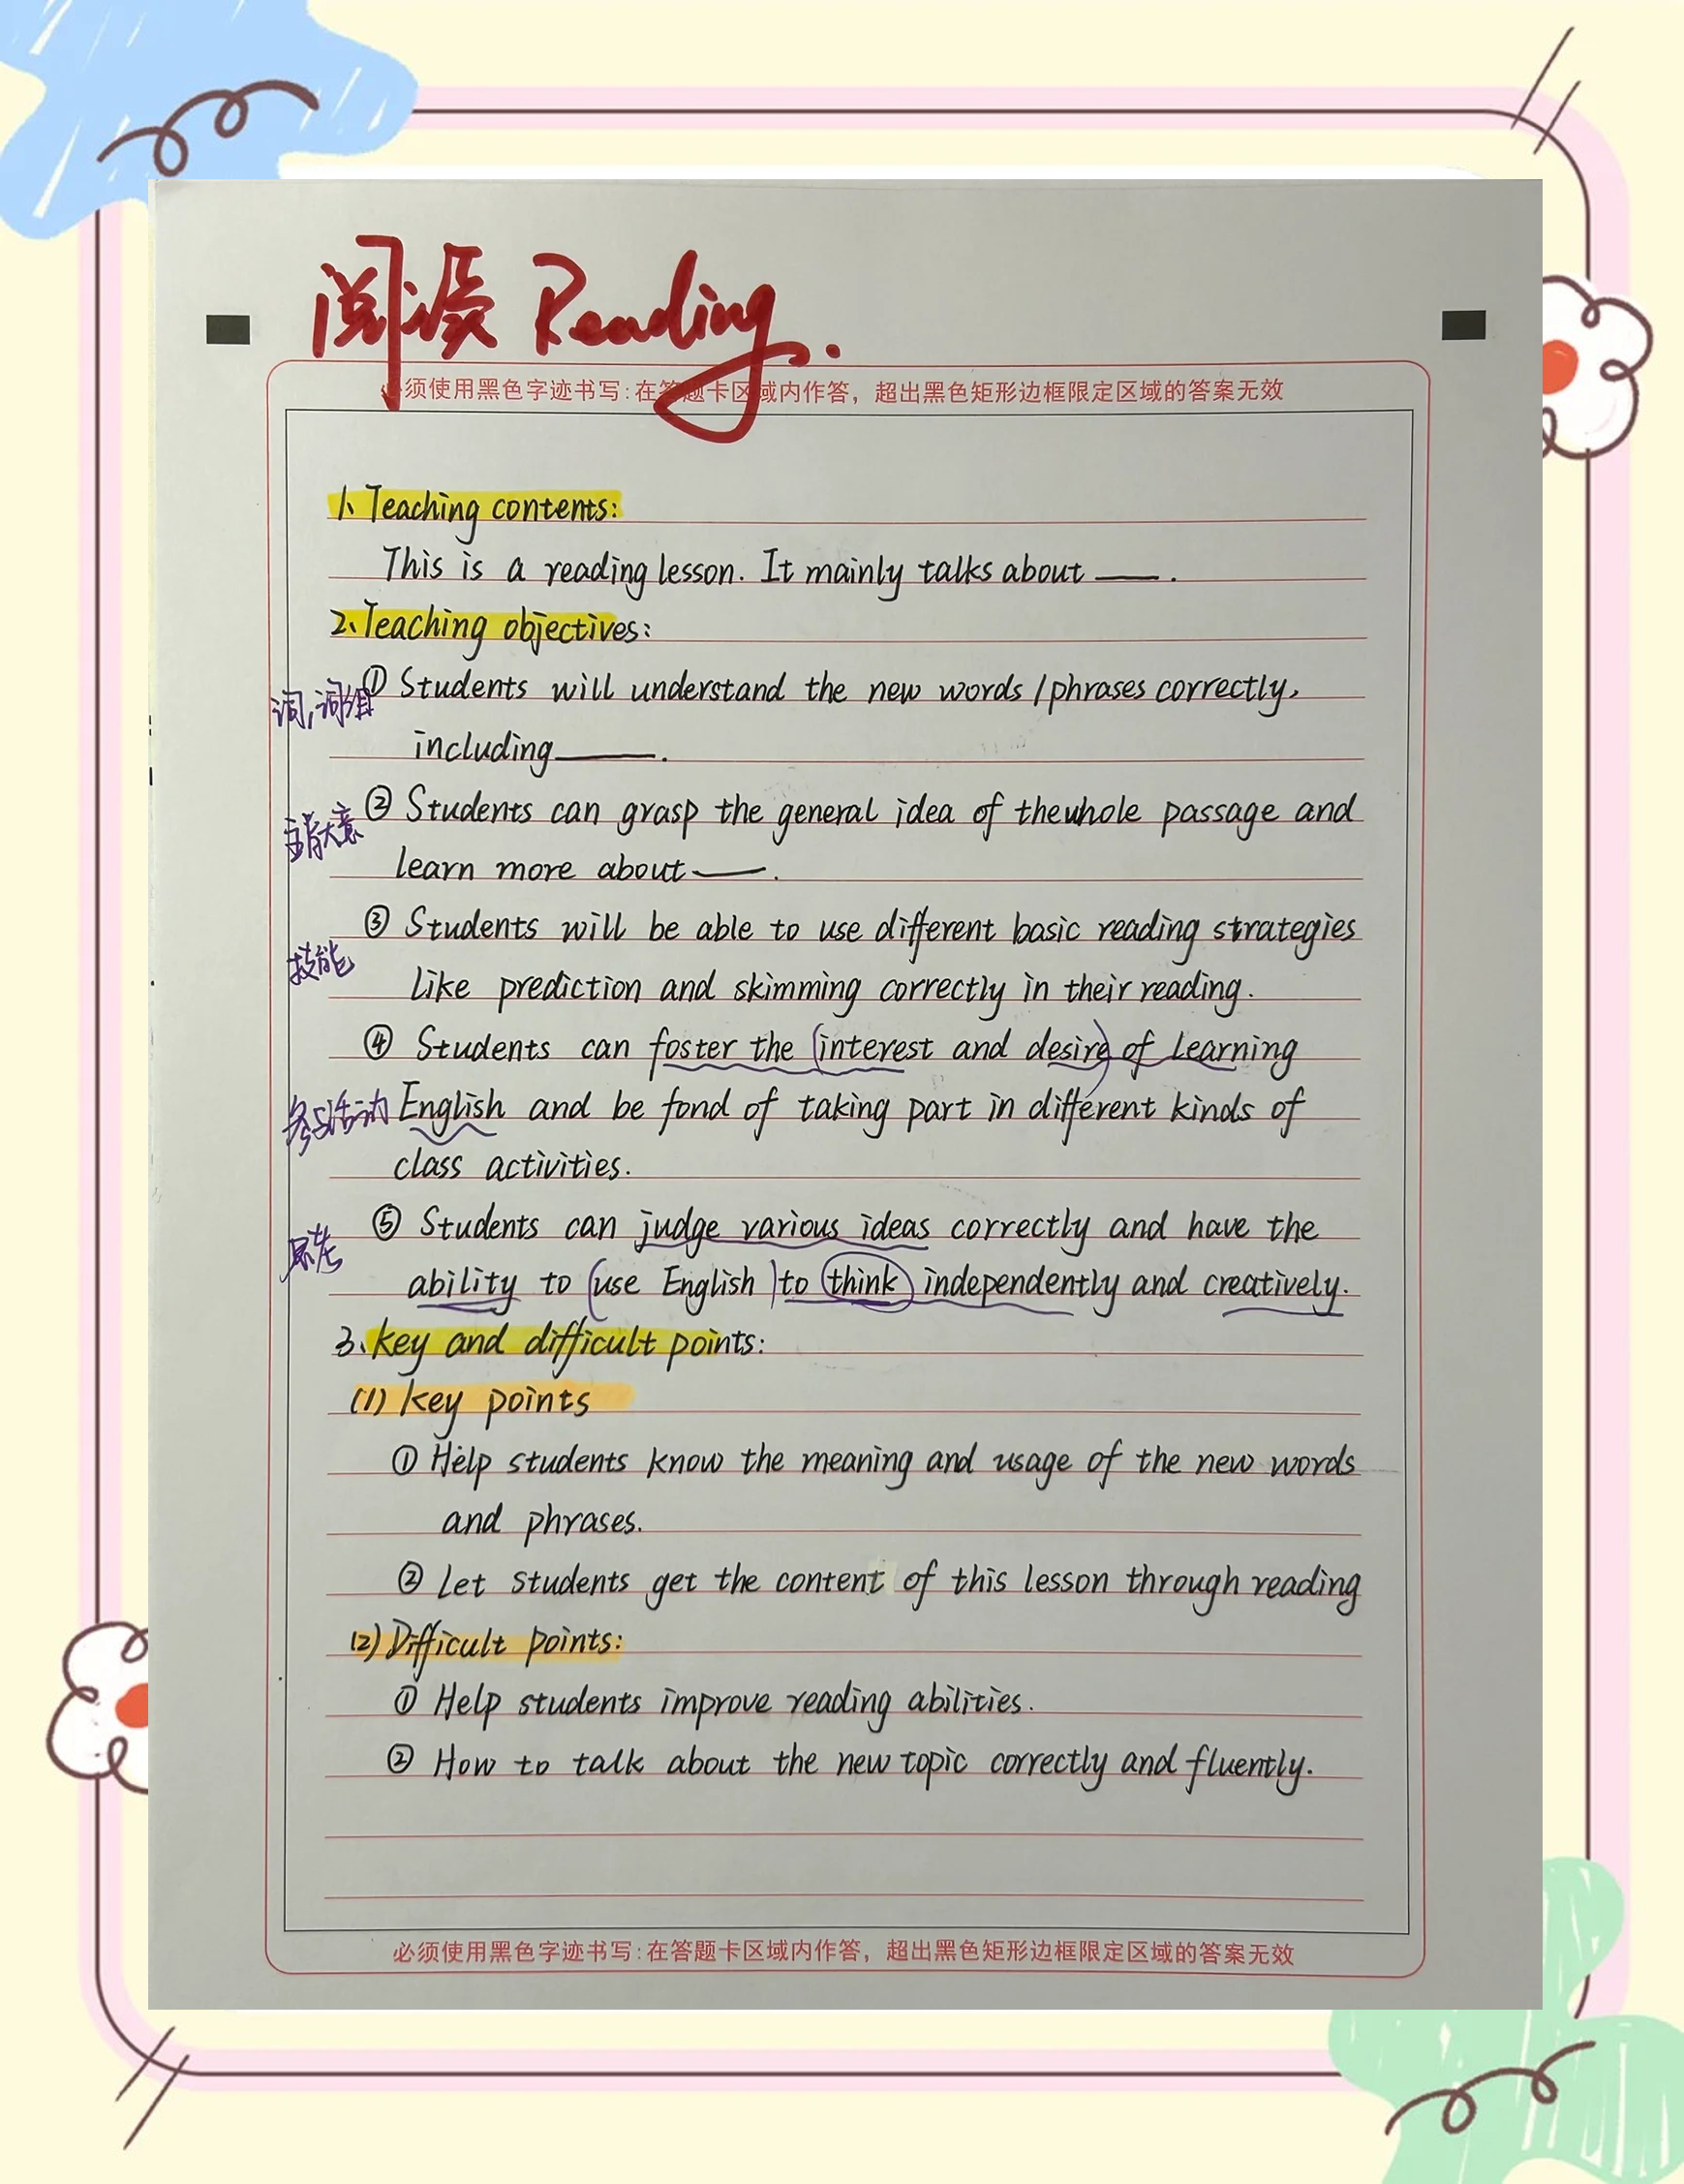 阅读 Reading.
必须使用黑色字迹书写:在答题卡区域内作答，超出黑色矩形边框限定区域的答案无效
1、Teaching contents:
This is a reading lesson. It mainly talks about ___.
2、Teaching objectives:
词,词组 ① Students will understand the new words/phrases correctly,
including ___.
主旨大意 ② Students can grasp the general idea of the whole passage and
learn more about ___.
③ Students will be able to use different basic reading strategies
技能 like prediction and skimming correctly in their reading.
④ Students can foster the (interest and desire) of learning
参与活动 English and be fond of taking part in different kinds of
class activities.
思考 ⑤ Students can judge various ideas correctly and have the
ability to (use English) to think independently and creatively.
3、key and difficult points:
(1) key points
① Help students know the meaning and usage of the new words
and phrases.
② Let students get the content of this lesson through reading
(2) Difficult points:
① Help students improve reading abilities.
② How to talk about the new topic correctly and fluently.
必须使用黑色字迹书写:在答题卡区域内作答，超出黑色矩形边框限定区域的答案无效